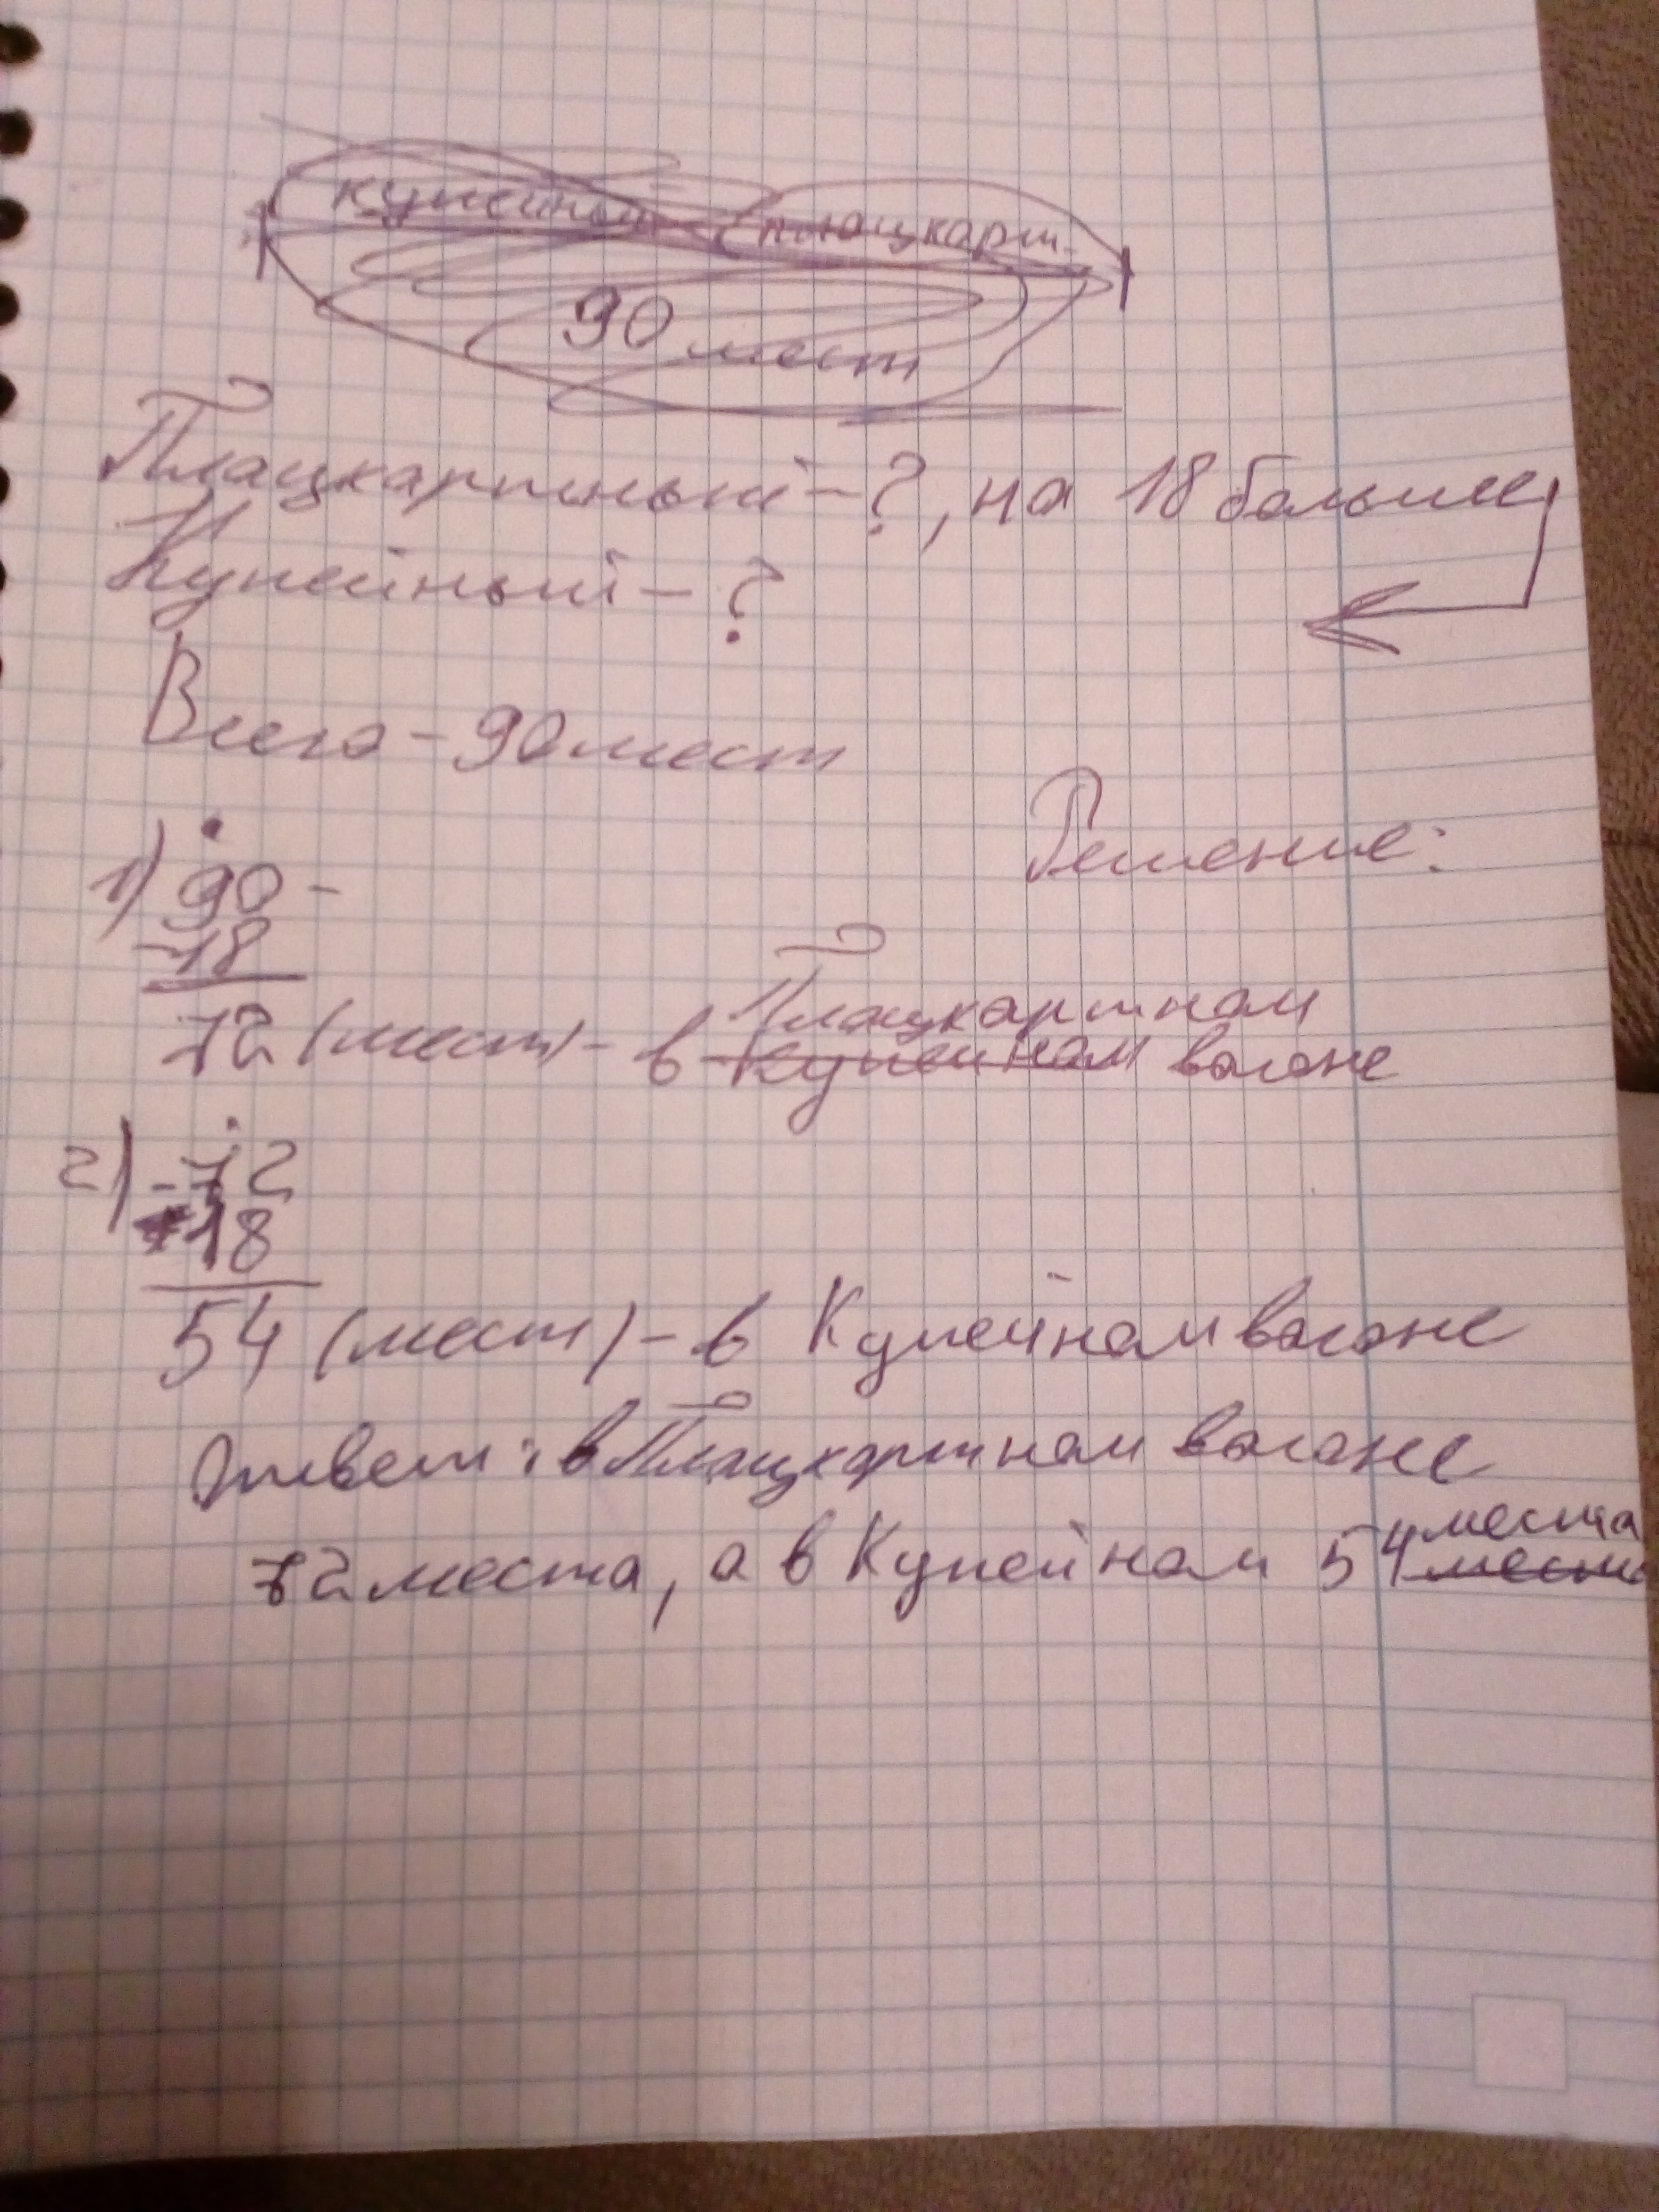 купейный плацкарт.
90 мест
Плацкартный - ?, на 18 больше
Купейный - ?
Всего - 90 мест
Решение:
1) 90 -
-18
72 (мест) - в Плацкартном
купейном вагоне
2) -72
18
54 (мест) - в Купейном вагоне
Ответ: в Плацкартном вагоне
72 места, а в Купейном 54 места
мест